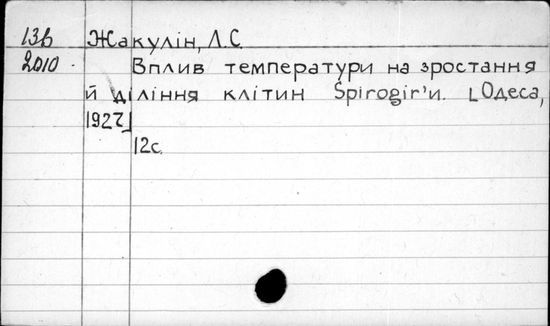 13в Жакулін, Л.С.
2010. Вплив температури на зростання
й діління клітин Spirogir'и. [Одеса,
1927]
12с.